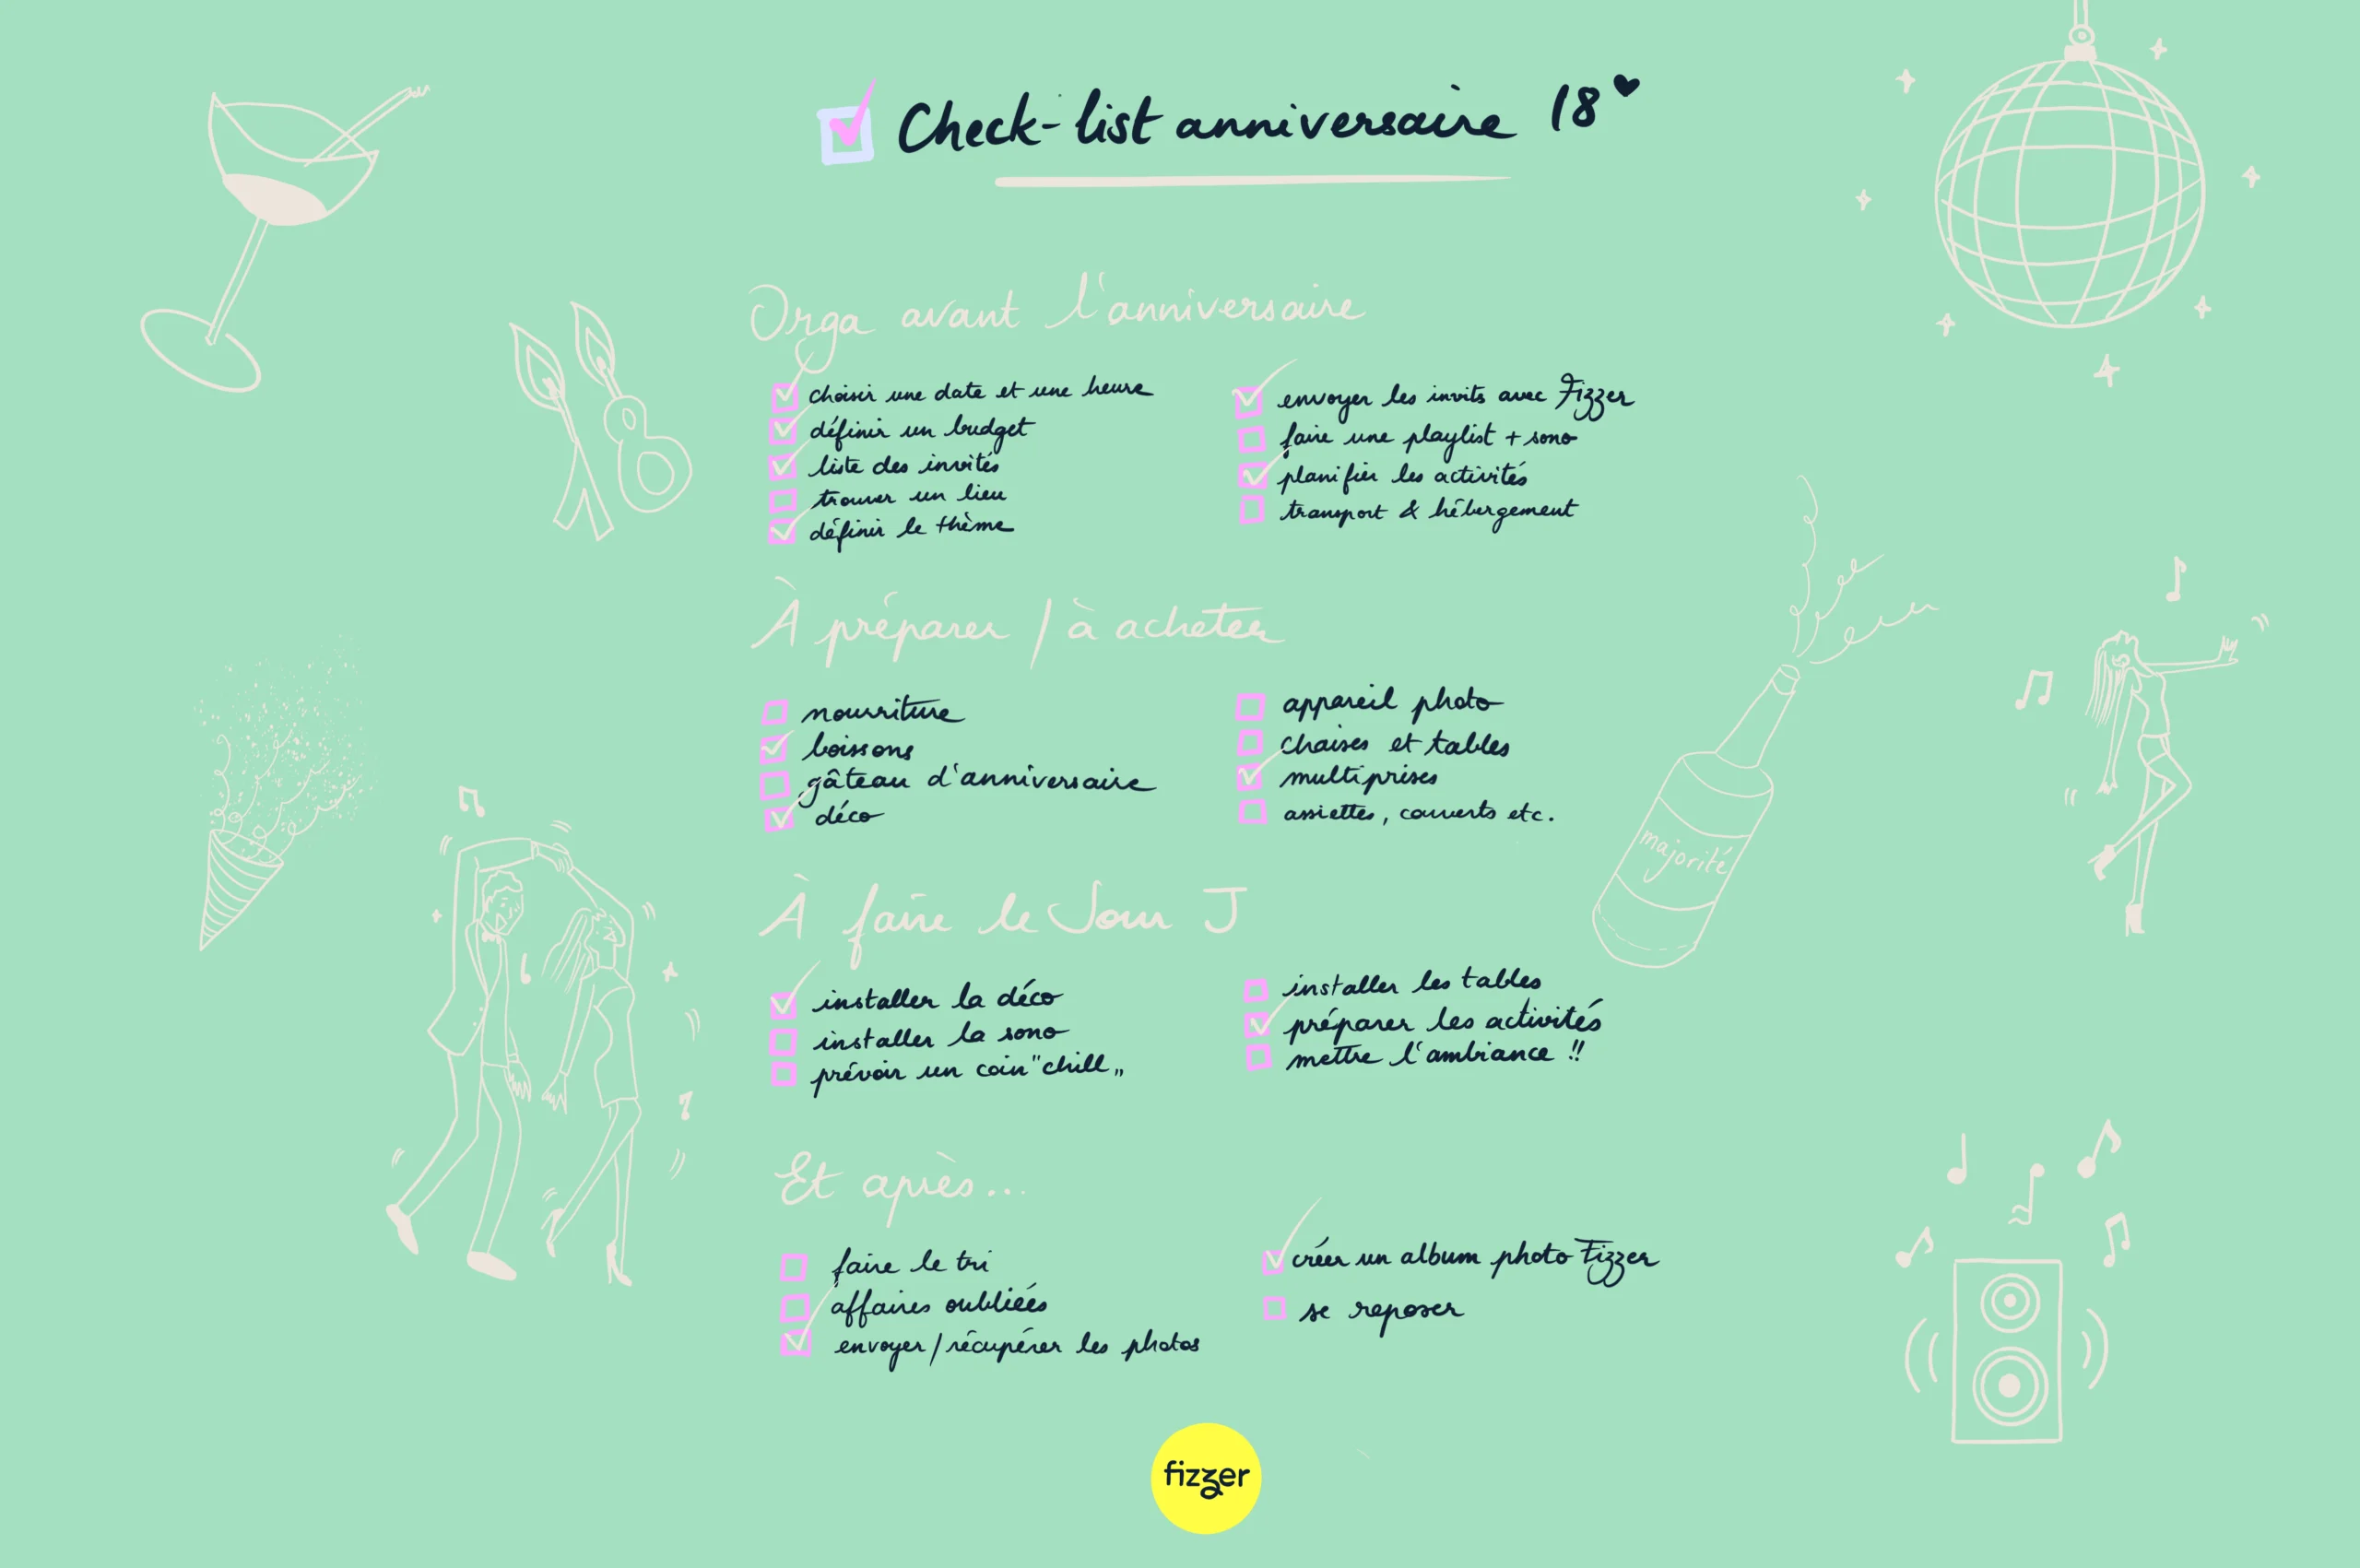 Check-list anniversaire 18
Orga avant l'anniversaire
choisir une date et une heure
définir un budget
liste des invités
trouver un lieu
définir le thème
envoyer les invits avec Fizzer
faire une playlist + sono
planifier les activités
transport & hébergement
À préparer / à acheter
nourriture
boissons
gâteau d'anniversaire
déco
appareil photo
chaises et tables
multiprises
assiettes, couverts etc.
majorité
À faire le Jour J
installer la déco
installer la sono
prévoir un coin "chill"
installer les tables
préparer les activités
mettre l'ambiance !!
Et après...
faire le tri
affaires oubliées
envoyer/récupérer les photos
créer un album photo Fizzer
se reposer
fizzer